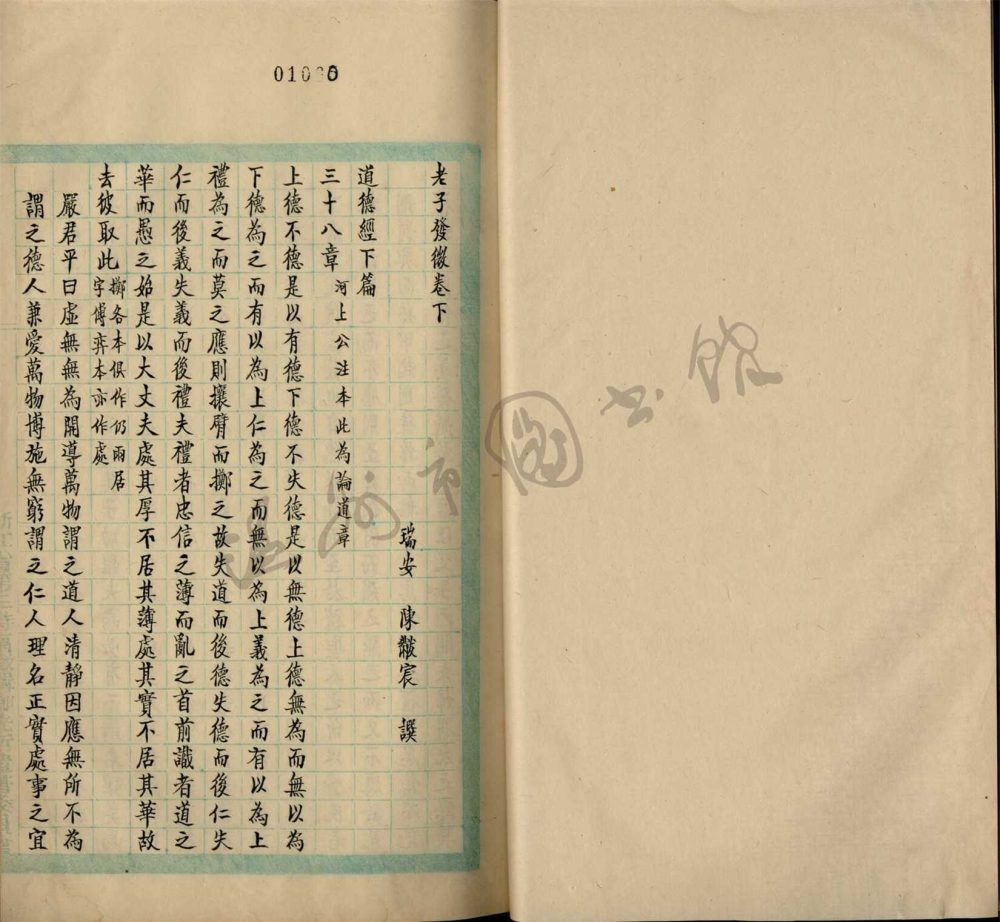 01080
老子發微卷下
瑞安 陳黻宸 譔
道德經下篇
三十八章 河上公注本此為論道章
上德不德是以有德下德不失德是以無德上德無為而無以為
下德為之而有以為上仁為之而無以為上義為之而有以為上
禮為之而莫之應則攘臂而擲之故失道而後德失德而後仁失
仁而後義失義而後禮夫禮者忠信之薄而亂之首前識者道之
華而愚之始是以大丈夫處其厚不居其薄處其實不居其華故
去彼取此 擲各本俱作仍兩居
字傅弈本亦作處
嚴君平曰虛無無為開導萬物謂之道人清靜因應無所不為
謂之德人兼愛萬物博施無窮謂之仁人理名正實處事之宜
溫州市圖書館